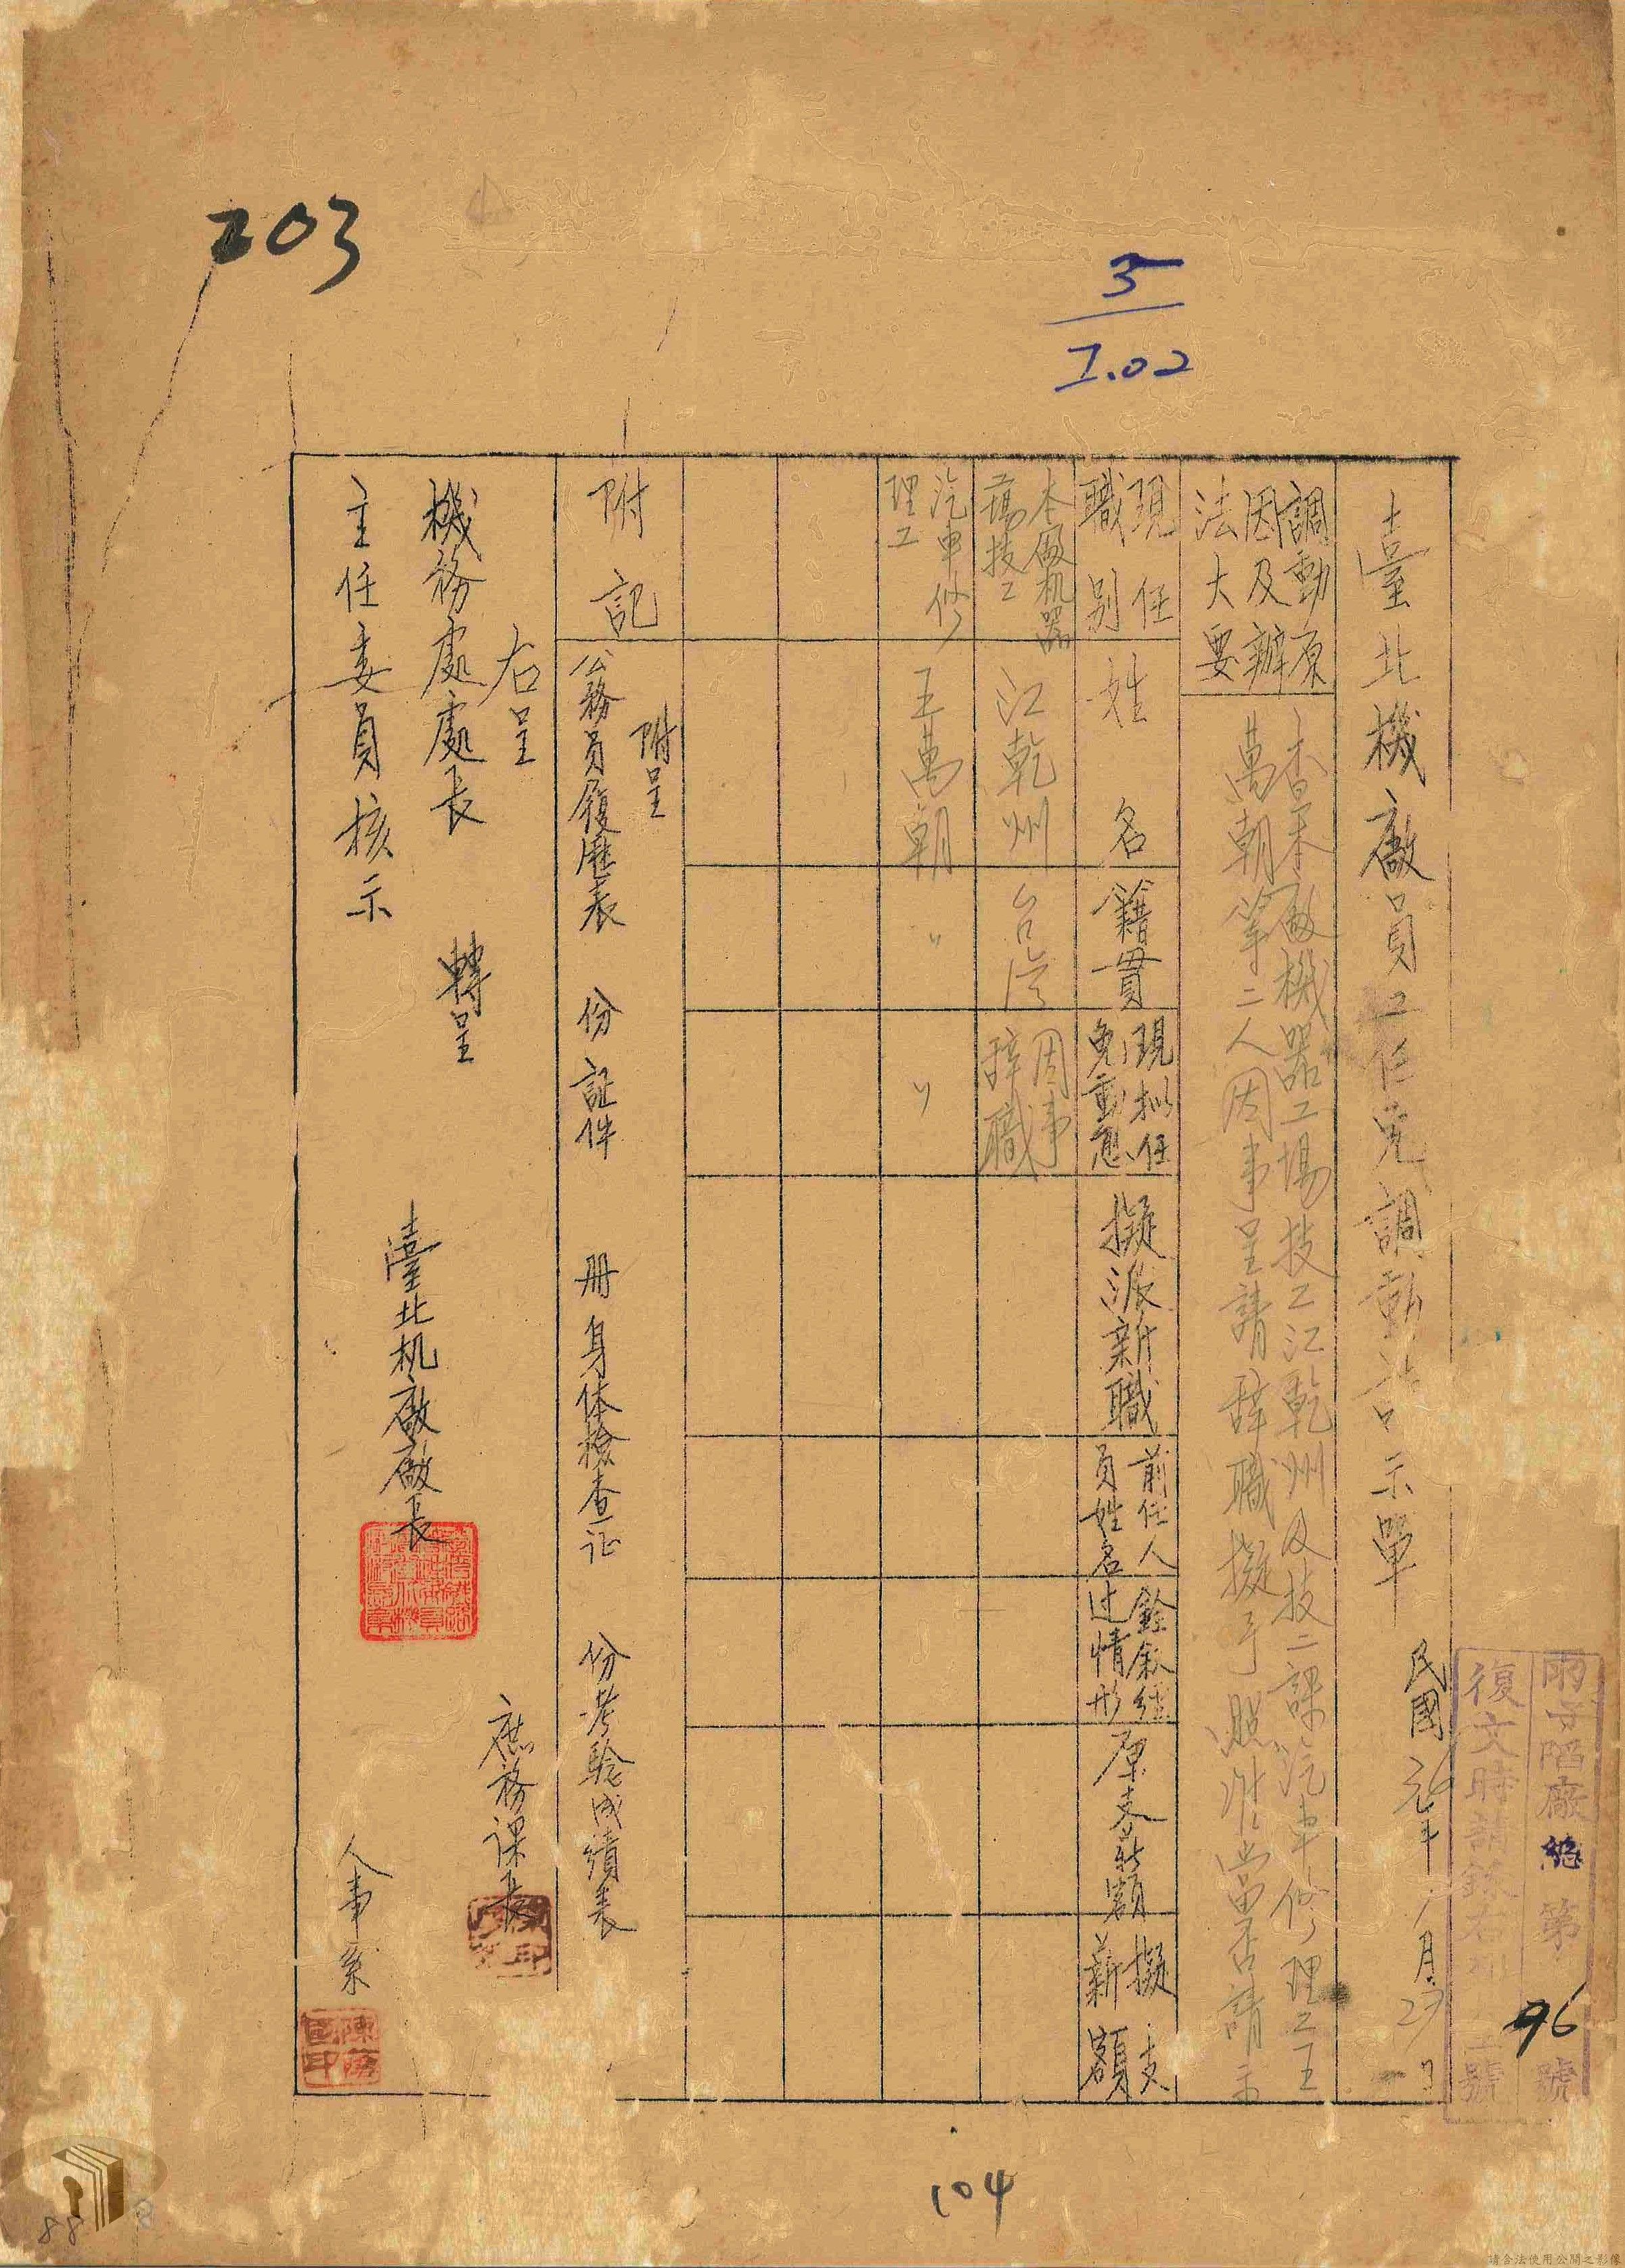 203
3
I.02
雨子陷廠總第96號
復文時請錄右列 號
臺北機廠員工任免調動請示單
民國元年 月29日
調動原
因及辦
法大要
查本廠機器工場技工江乾州及技二課汽車修理工王
萬朝等二人因事呈請辭職擬予照准當否請示
現任
職別
姓名
籍貫
現拟任
免動
擬派新職
前任人
員姓名
銓叙經
过情形
原支薪額
擬支
薪額
本廠机器
場技工
江乾州
台湾
因事
辞職
汽車修
理工
王萬朝
〃
〃
附記
附呈
公務員履歷表 份 証件 册 身体檢查証 份 考驗成績表
右呈
機務處處長 轉呈
主任委員核示
臺北机廠廠長
庶務課長
人事系
104
88
8
請合法使用公開之影像